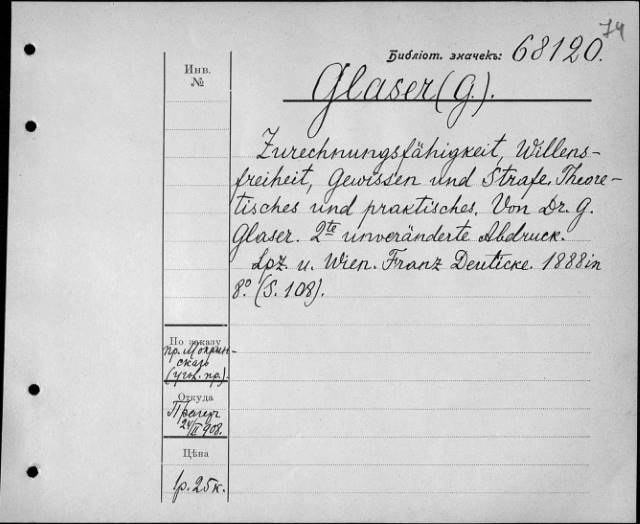 74
Библіот. значекъ: 68120.
Инв.
№
Glaser (G.).
Zurechnungsfähigkeit, Willens-
freiheit, Gewissen und Strafe. Theore-
tisches und praktisches. Von Dr. G.
Glaser. 2te unveränderte Abdruck.
Lpz. u. Wien. Franz Deuticke. 1888 in
8° (S. 108).
По заказу
пр. Мокрин-
скаго
(угол. пр.).
Откуда
Прагеръ
24/II 908.
Цѣна
1р. 25к.